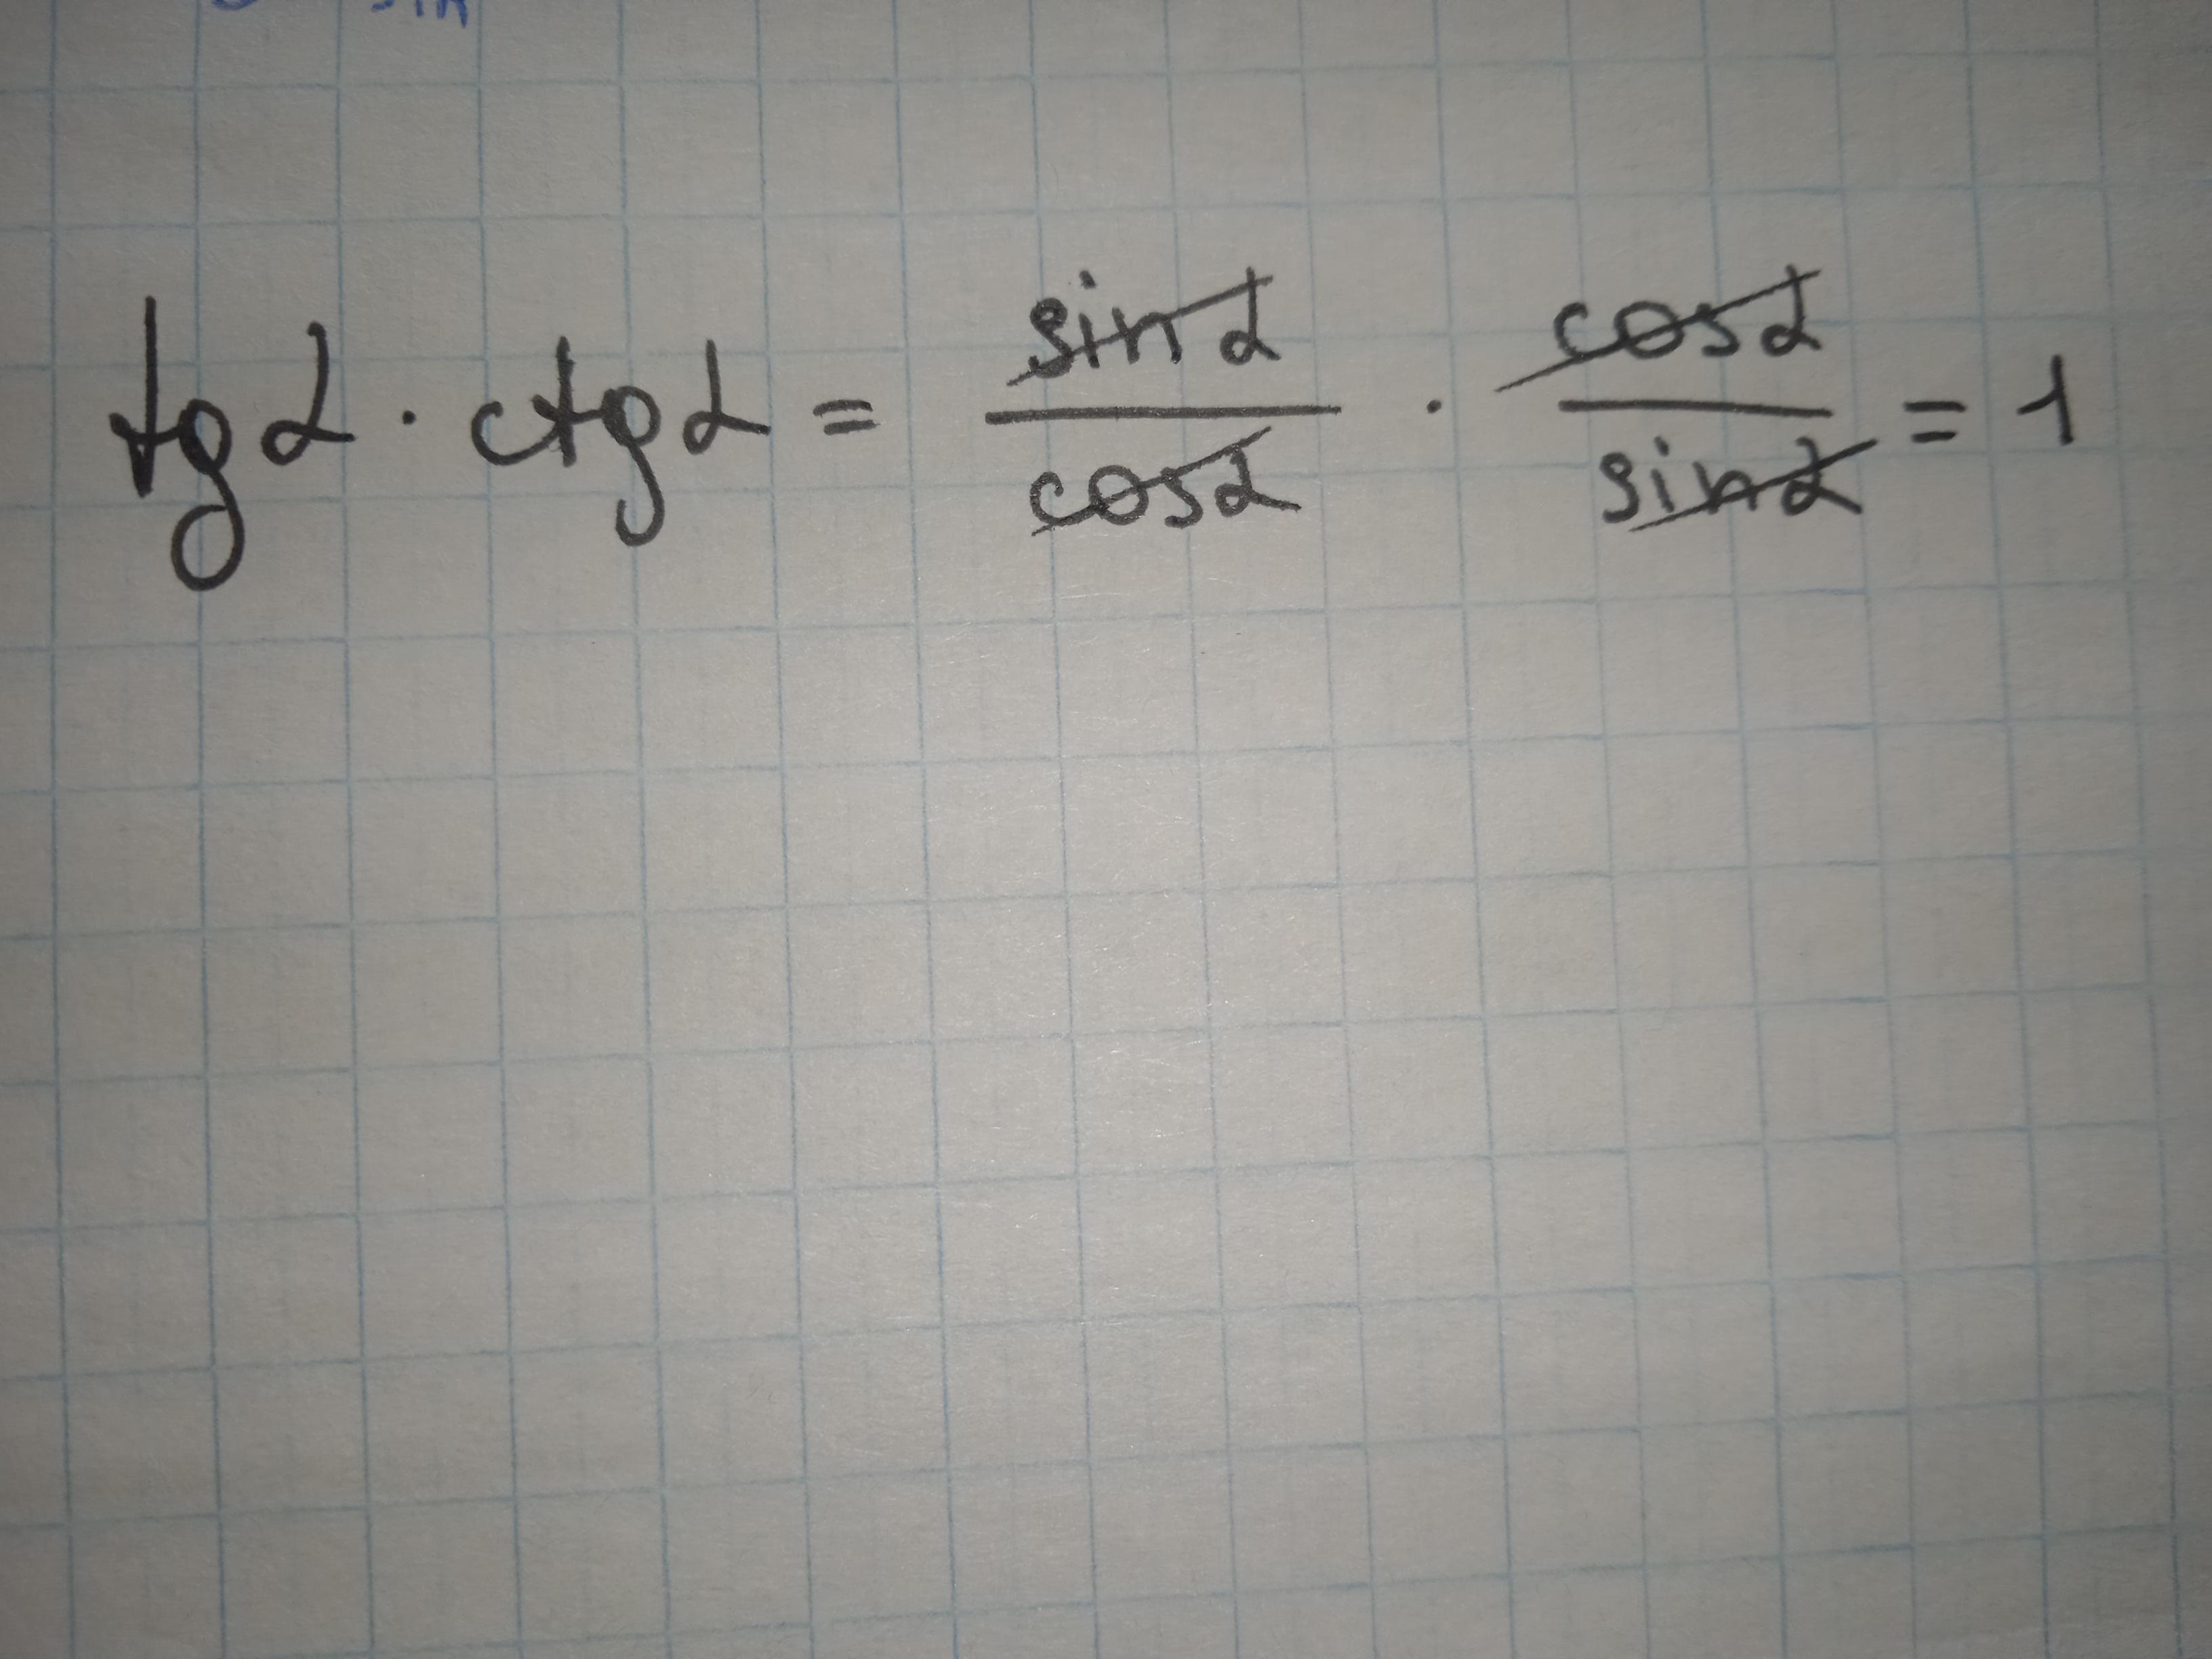 sin
tg α · ctg α = sin α / cos α · cos α / sin α = 1